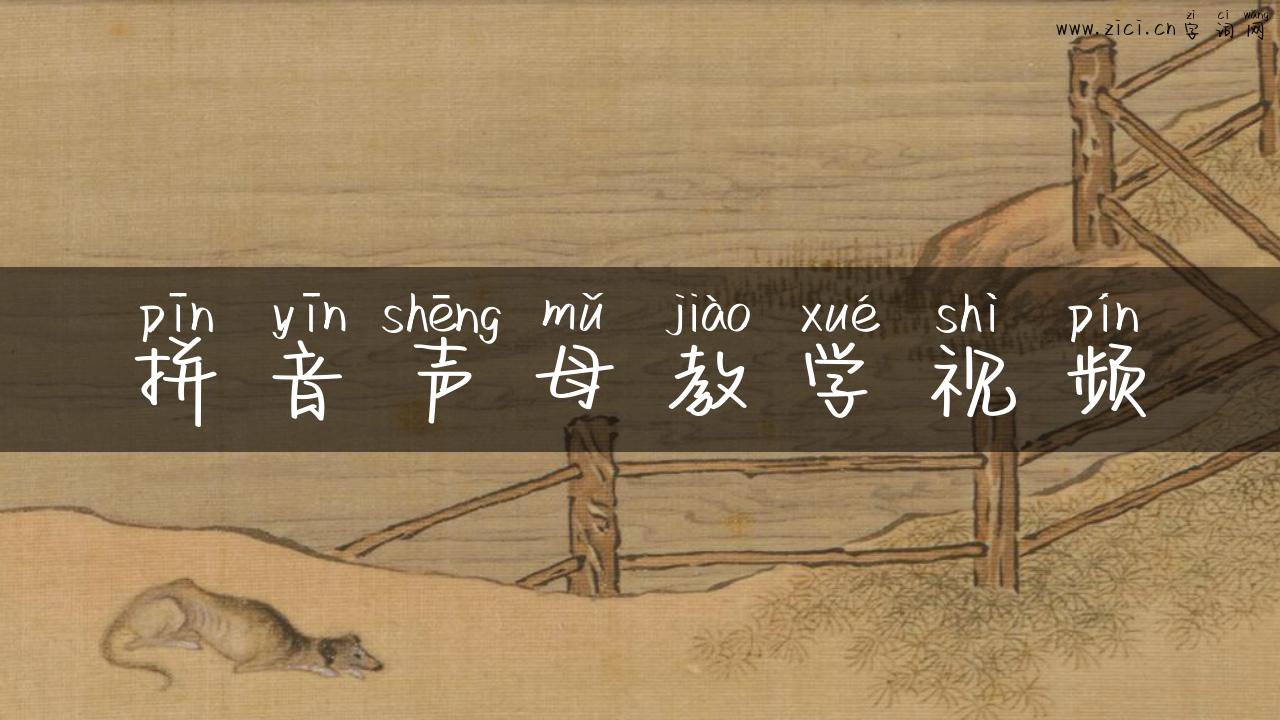 zì cí wǎng
www.zici.cn 字词网
pīn yīn shēng mǔ jiào xué shì pín
拼音声母教学视频